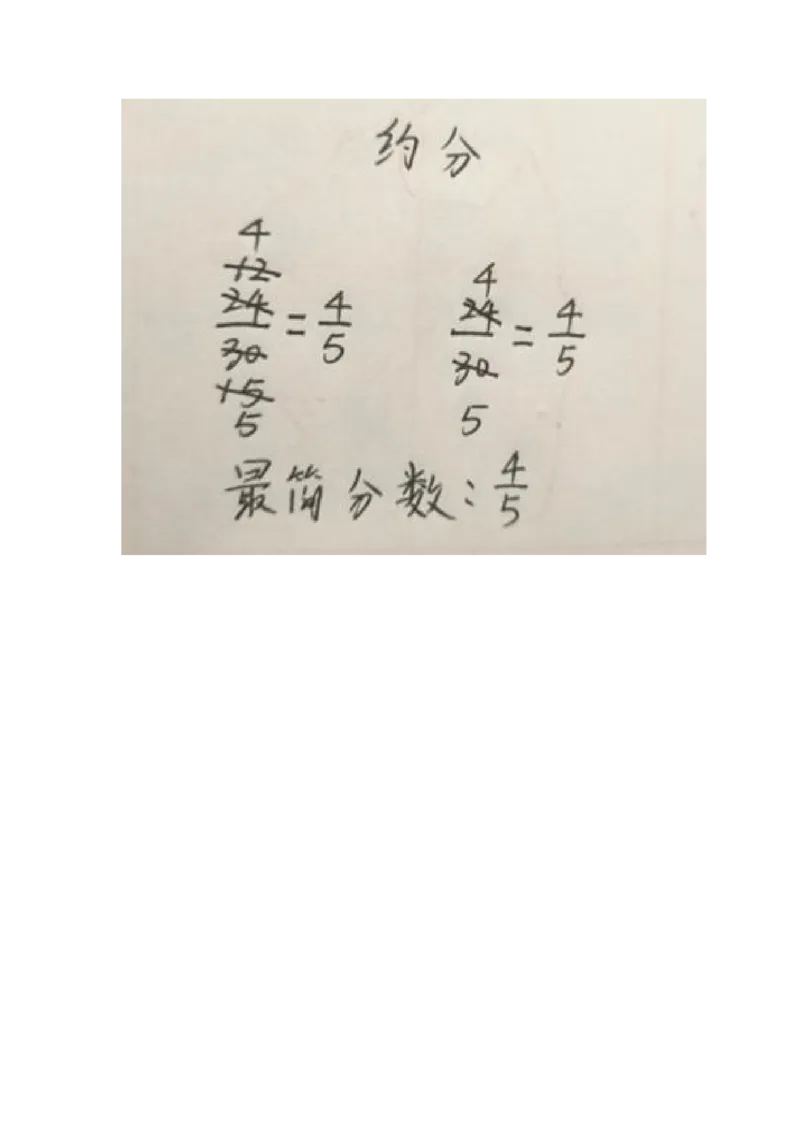 约分
4
12
24
30
15
5
= 4/5
4
24
30
5
= 4/5
最简分数：4/5